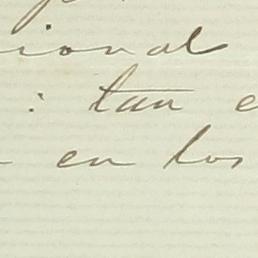 ional
: tan e
en los